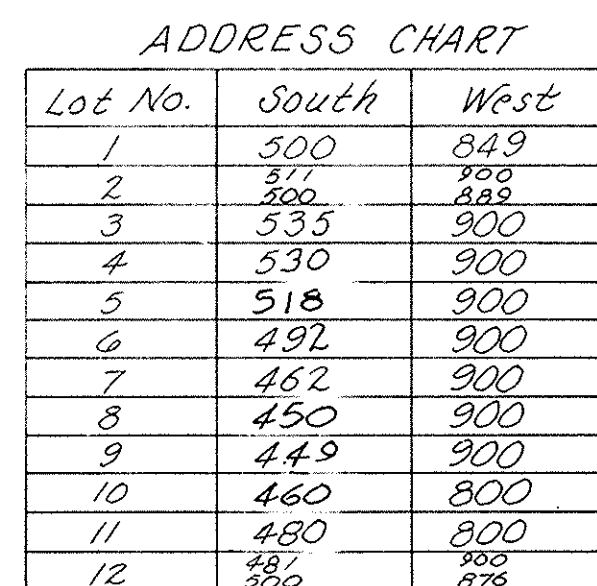 ADDRESS CHART
Lot No. South West
1 500 849
2 511 900
500 889
3 535 900
4 530 900
5 518 900
6 492 900
7 462 900
8 450 900
9 449 900
10 460 800
11 480 800
12 481 900
500 876